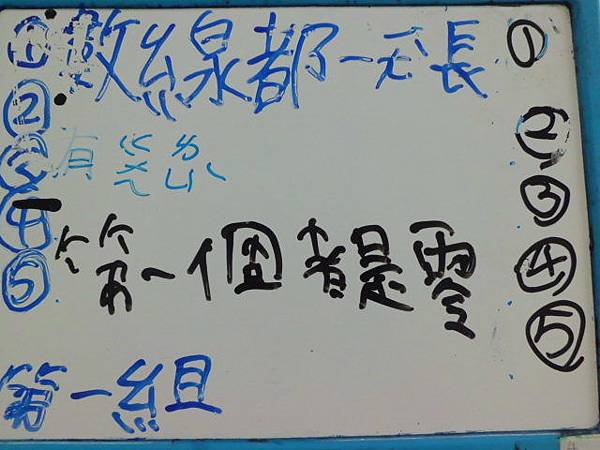 ① 數線都一不長 ①
② ②
③ 有ㄍㄤ ㄌㄠˇ ③
④ 第一個都是零 ④
⑤ ⑤
第一組